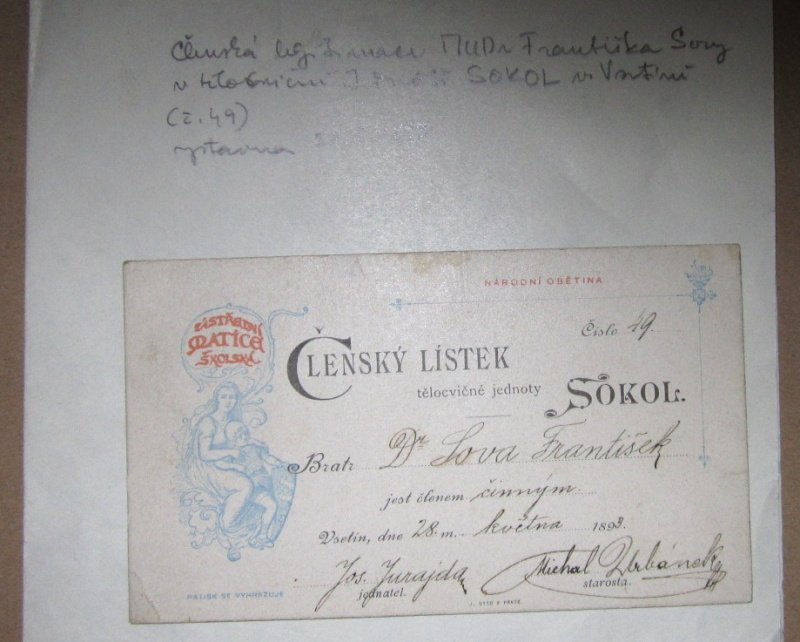 Členská legitimace MUDr Františka Sovy
v tělocvičné Jednotě SOKOL ve Vsetíně
(č. 49)
NÁRODNÍ OBĚTINA
ÚSTŘEDNÍ
MATICE
ŠKOLSKÁ
Číslo 49.
ČLENSKÝ LÍSTEK
tělocvičné jednoty SOKOL.
Bratr Dr Sova František
jest členem činným
Vsetín, dne 28. m. května 1893.
Jos. Jurajda Michal Urbánek
jednatel. starosta.
PATISK SE VYHRAZUJE
J. OTTO V PRAZE.